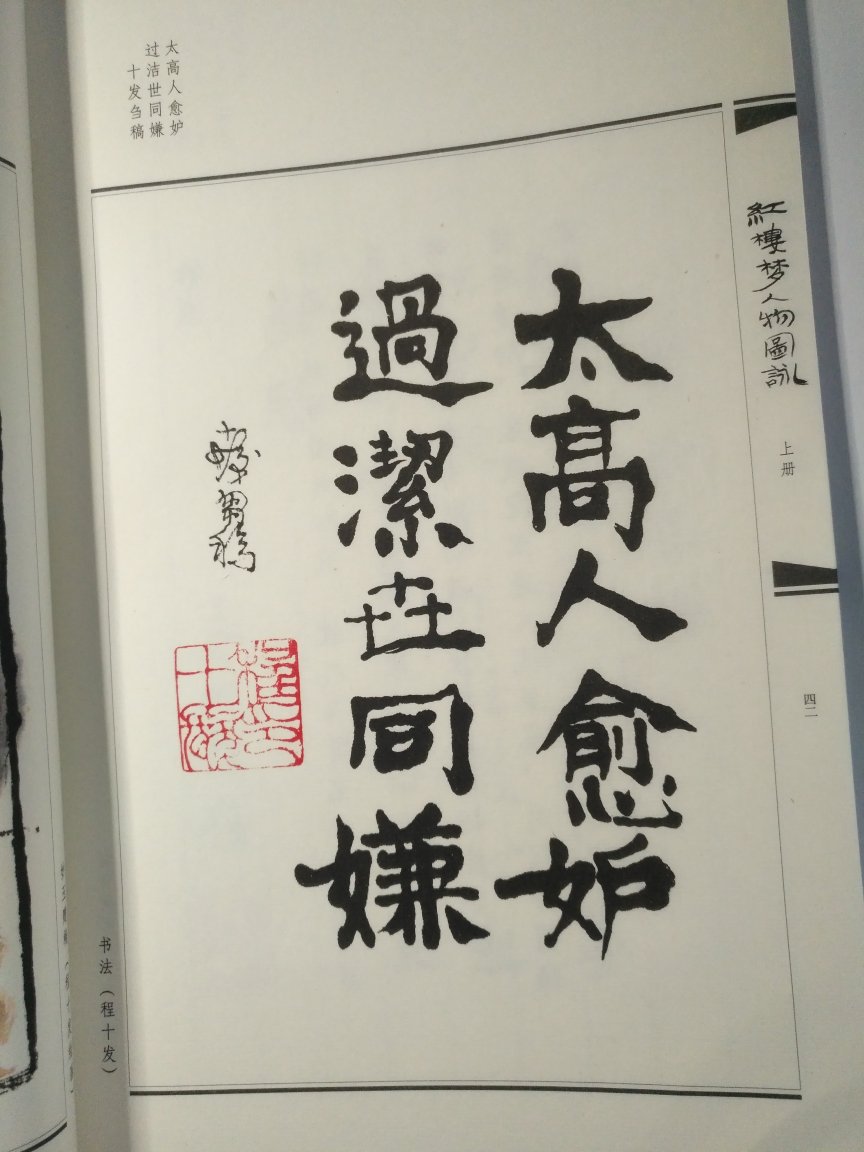 紅樓梦人物圖詠
上册
四二
太高人愈妒
过洁世同嫌
十发刍稿
太高人愈妒
過潔世同嫌
十發芻稿
程氏十髮
书法（程十发）